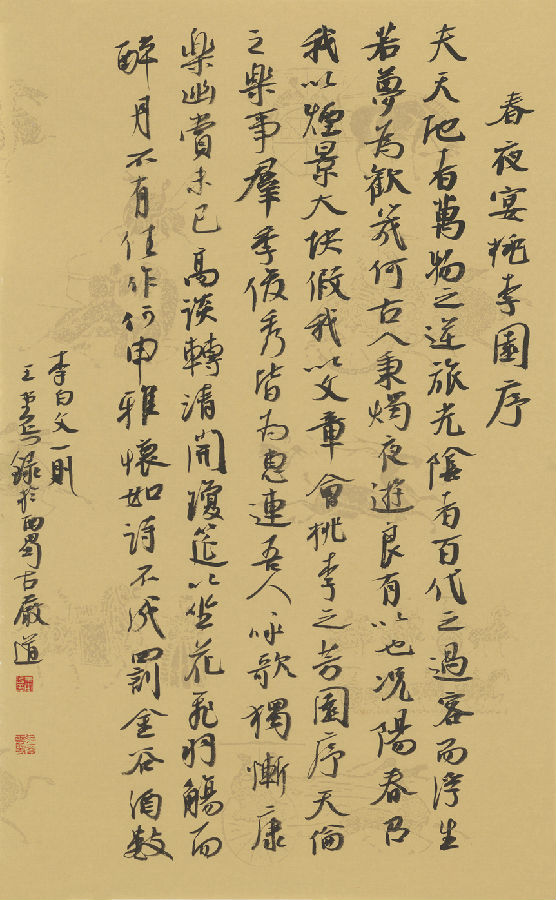 春夜宴桃李園序
夫天地者萬物之逆旅光陰者百代之過客而浮生
若夢為歡幾何古人秉燭夜遊良有以也況陽春召
我以煙景大塊假我以文章會桃李之芳園序天倫
之樂事羣季俊秀皆為惠連吾人詠歌獨慚康
樂幽賞未已高談轉清開瓊筵以坐花飛羽觴而
醉月不有佳作何申雅懷如詩不成罰金谷酒數
李白文一則
王錄於西蜀古嚴道